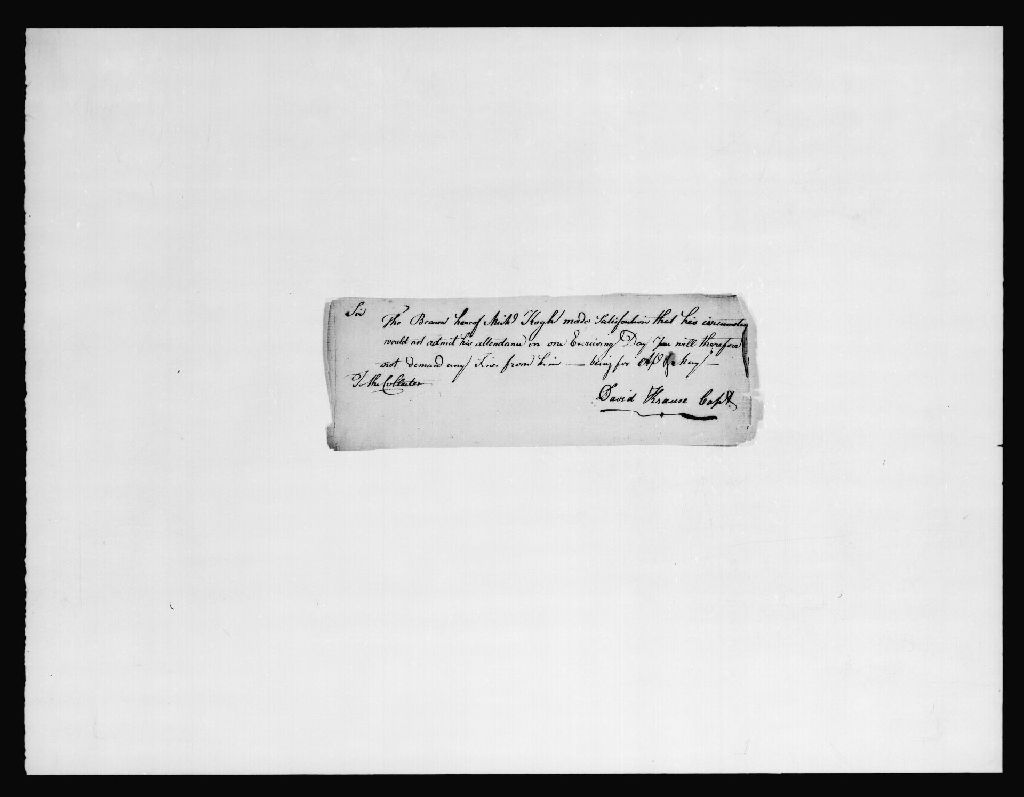 Sir
The Bearer hereof Mich.l Hogh made Satisfaction that his circumstan
would not admit his attendance on one Exercising Day You will therefore
not demand any fines from him — being for of May —
To the Collector
David Krause Capt.